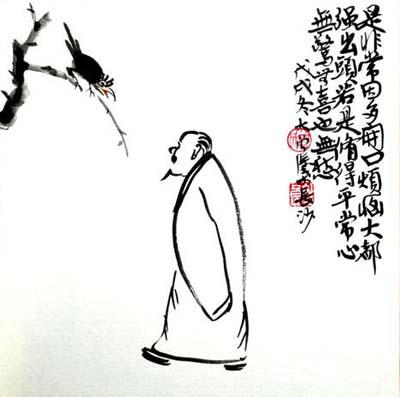 是非常因多開口煩惱大都
强出頭若是脩得平常心
無驚无喜也無愁
戊戌冬大長沙